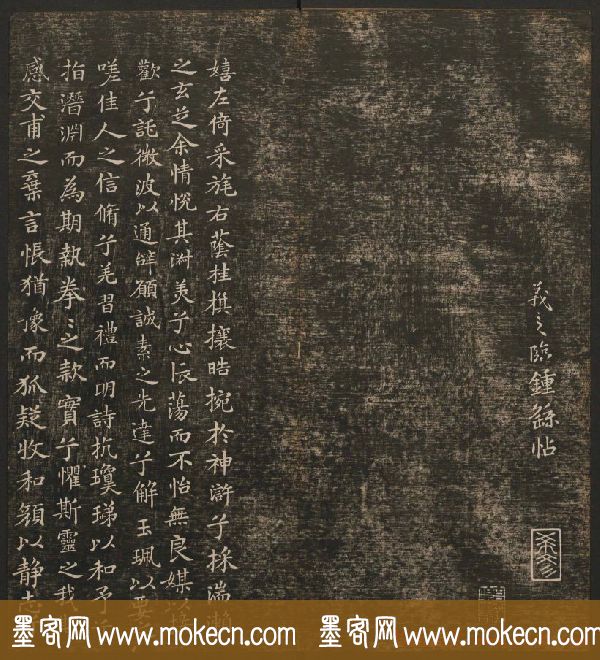 羲之臨鍾繇帖
嬉左倚采旄右蔭桂棋攘皓捥於神滸兮採湍瀨
之玄芝余情悅其淑美兮心振蕩而不怡無良媒以接
歡兮託微波以通辭願誠素之先達兮解玉珮以要
嗟佳人之信脩兮羌習禮而明詩抗瓊珶以和予
指潛淵而為期執拳〻之款實兮懼斯靈之我
感交甫之棄言悵猶豫而狐疑收和顏以静志
墨客网 www.mokecn.com 墨客网 www.mokecn.com